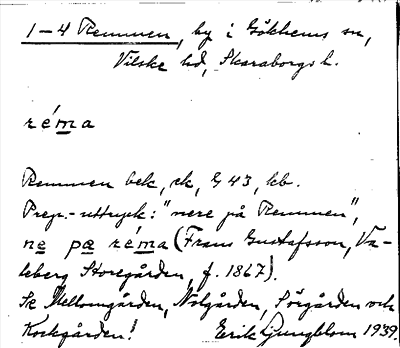 1-4 Remmen, by i Gökhems sn,
Vilske hd, Skaraborgs l.
réma
Remmen bek, ek, G 43, kb.
Prep.-uttryck: "nere på Remmen",
ne pa réma (Frans Gustafsson, Va-
leberg Storegården, f. 1867).
Se Mellomgården, Nolgården, Sörgården och
Kockgården! Erik Ljungblom 1939.